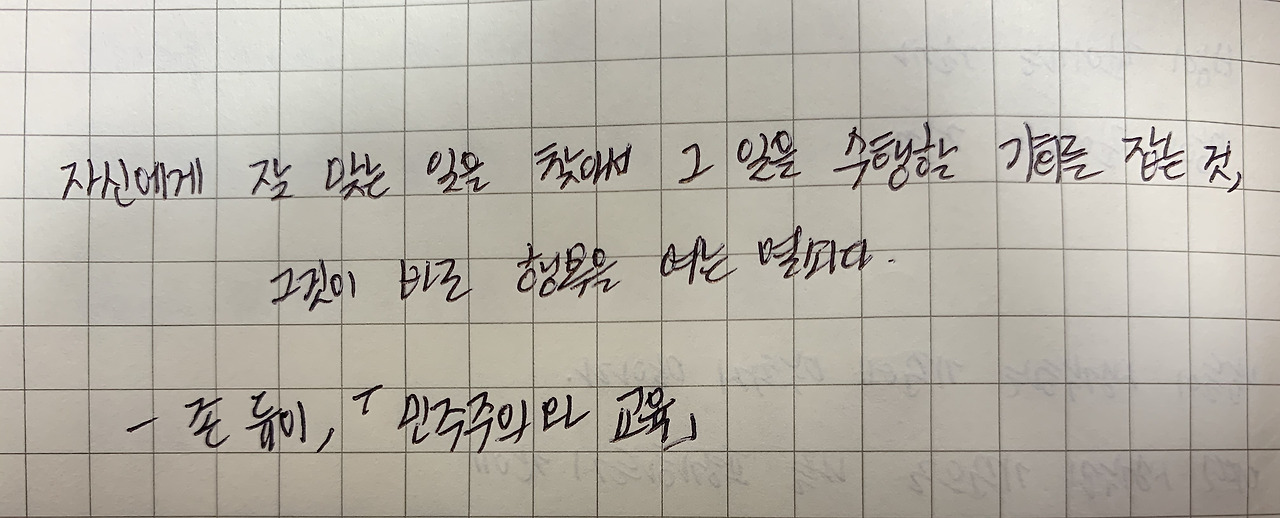 자신에게 잘 맞는 일을 찾아서 그 일을 수행할 기회를 잡는 것,
그것이 바로 행복을 여는 열쇠다.
- 존 듀이, 「민주주의와 교육」